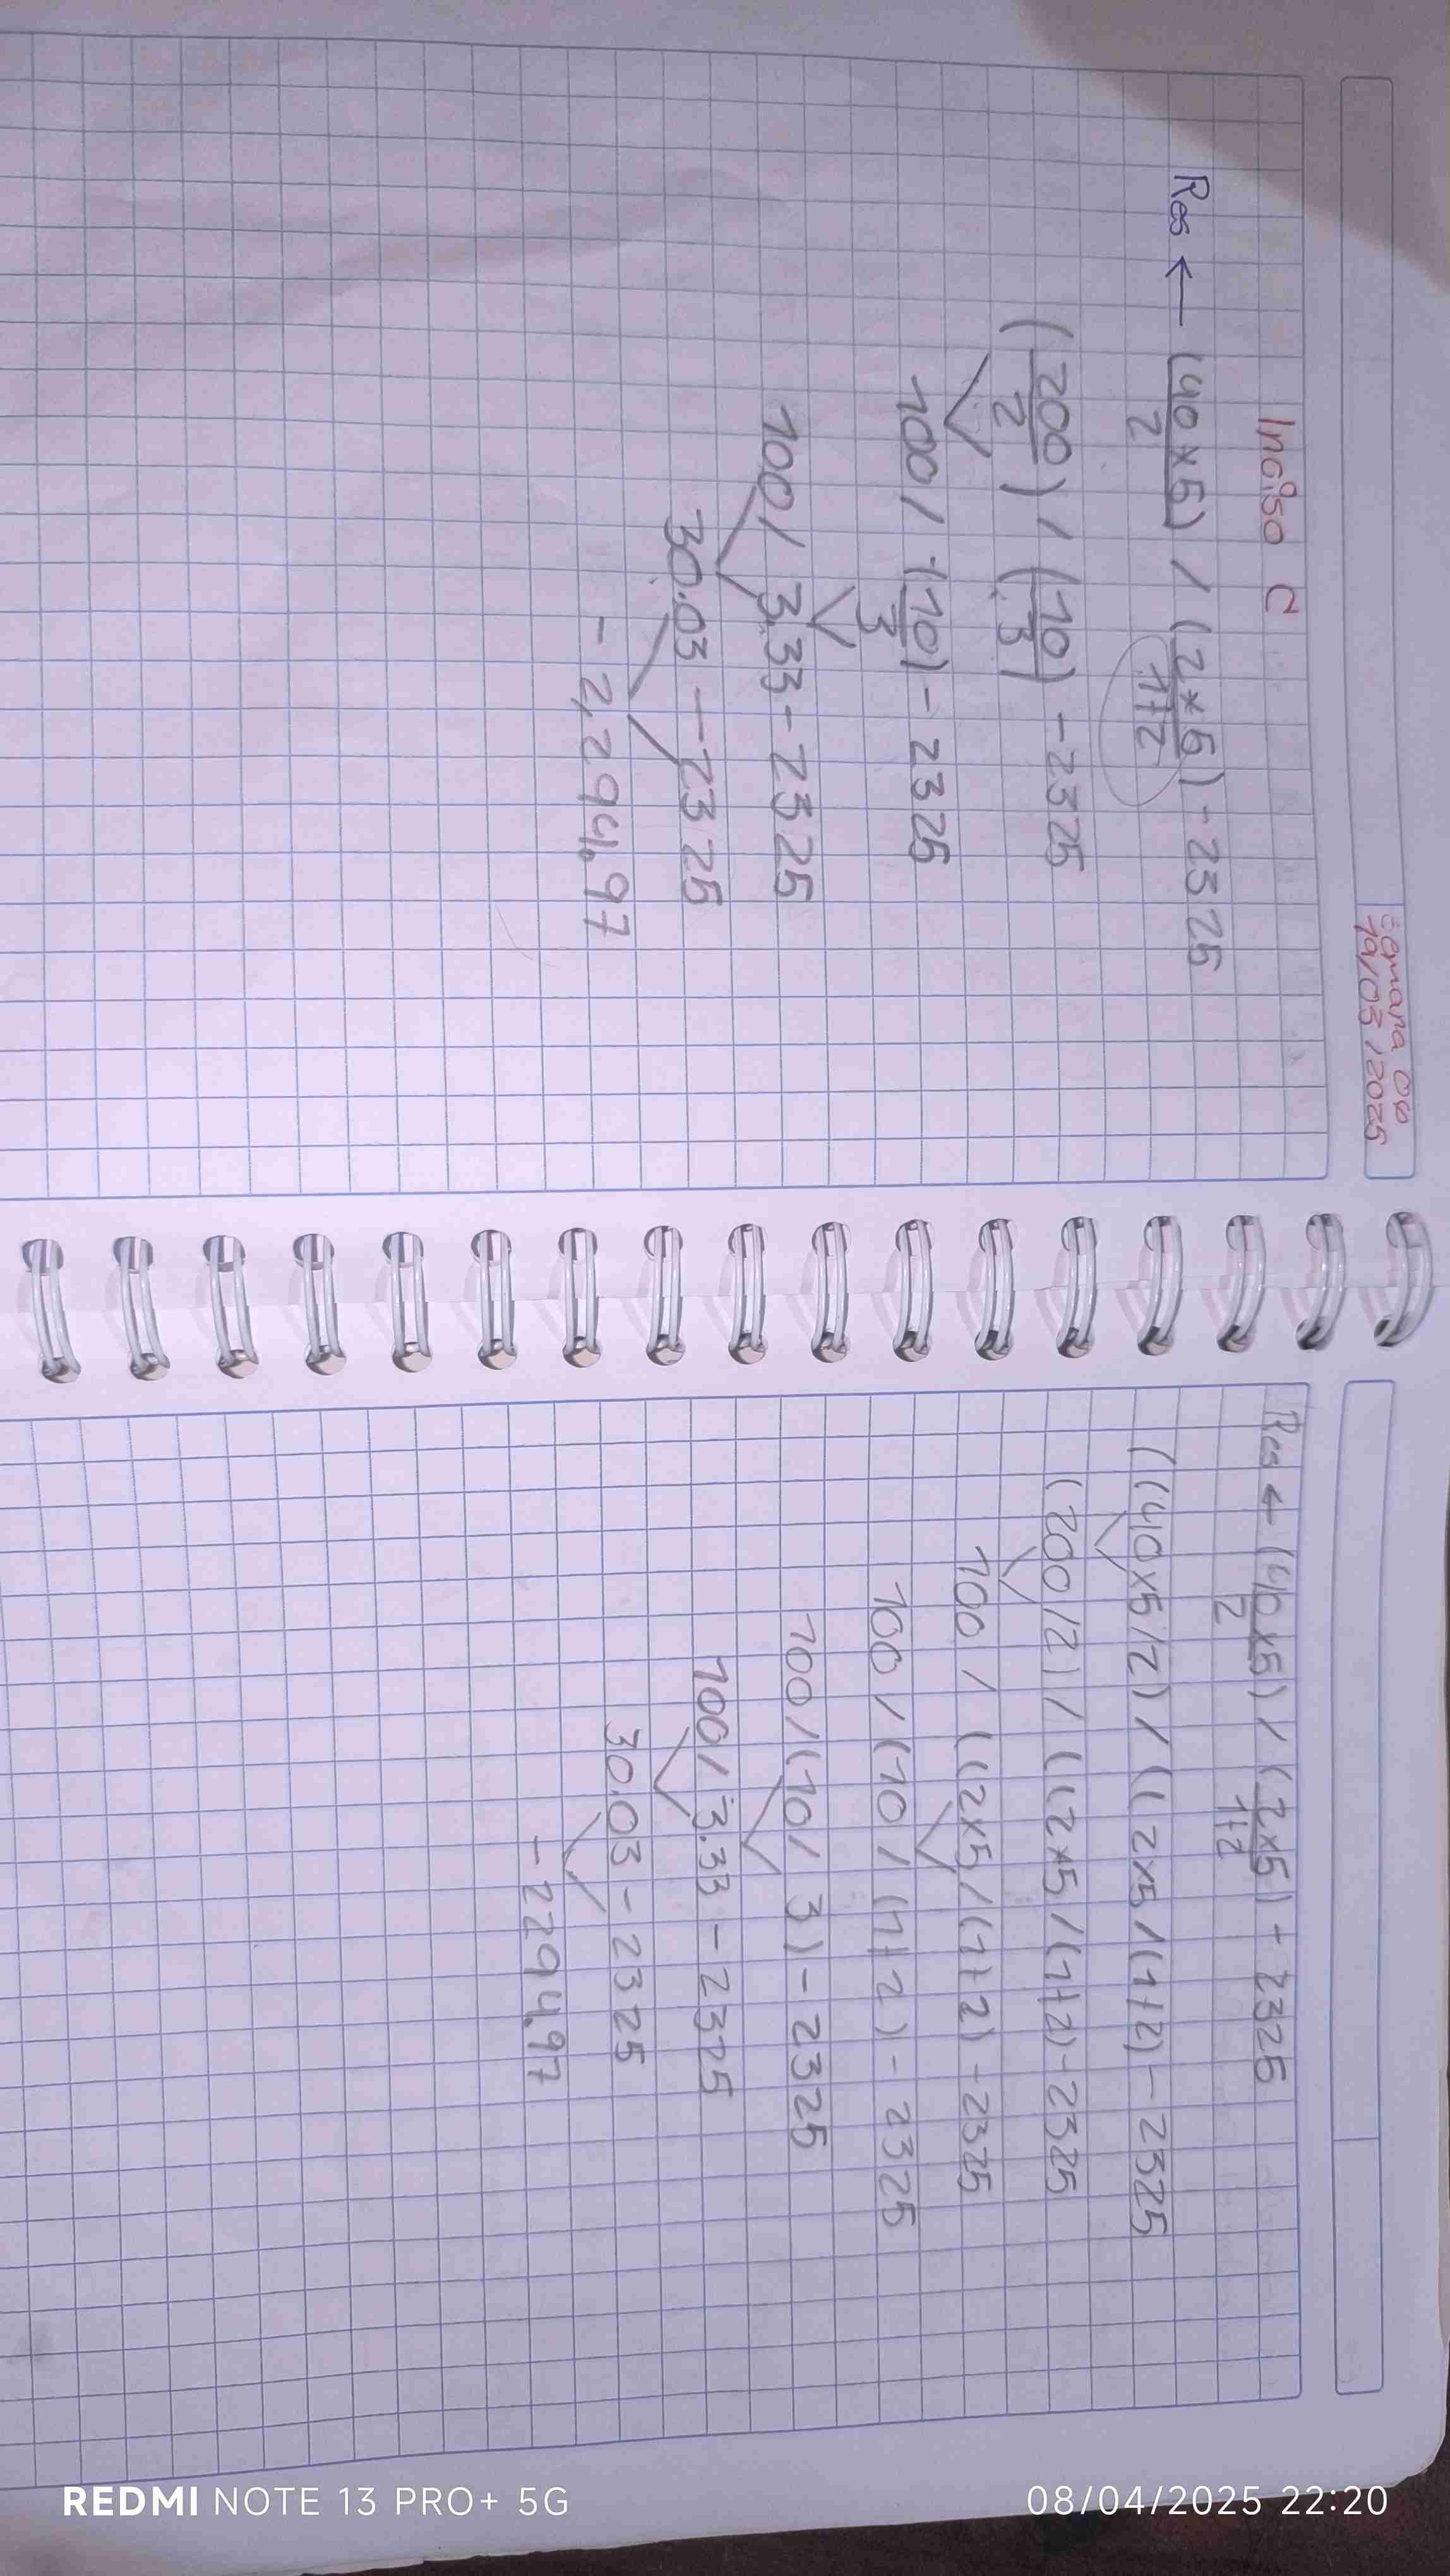 Semana 06
19/03/2025
Inciso C
Res ← (40 * 5) / (2 * 5) - 2325
2 1+2
(200) / (10) - 2325
2 3
100 / (10) - 2325
3
100 / 3.33 - 2325
30.03 - 2325
- 2,294.97
Res ← (40 x 5) / (2 x 5) - 2325
2 1+2
((40 x 5 / 2) / ((2 x 5 / (1+2) - 2325
(200 / 2) / ((2 x 5 / (1+2) - 2325
100 / ((2 x 5 / (1+2) - 2325
100 / (10 / (1+2) - 2325
100 / (10 / 3) - 2325
100 / 3.33 - 2325
30.03 - 2325
- 2294.97
REDMI NOTE 13 PRO+ 5G
08/04/2025 22:20